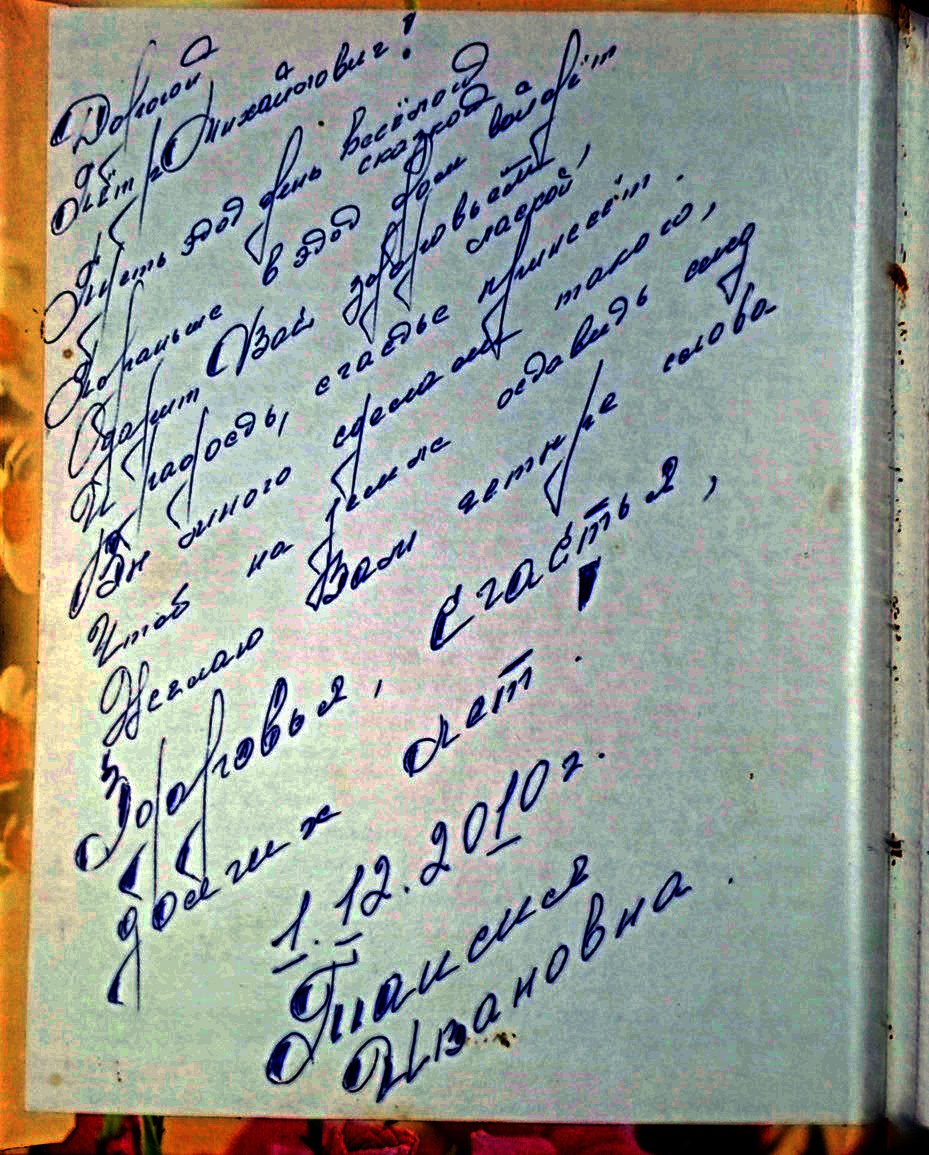 Дорогой
Пётр Михайлович!
Пусть этот день весёлой сказкой
Пораньше в этот дом войдёт
Одарит Вас здоровьем, лаской,
И радость, счастье принесёт.
Он много сделает такого,
Чтоб на земле оставить след
Желаю Вам четыре слова
Здоровья, счастья,
долгих лет!
1.12.2010г.
Таисия
Ивановна.